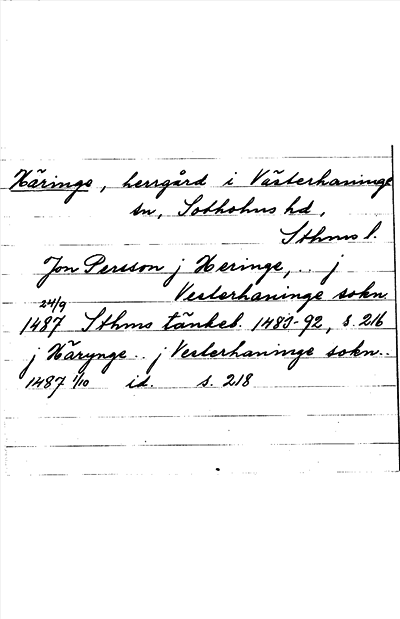 Häringe, herrgård i Västerhaninge
sn, Sotholms hd,
Sthms l.
Jon Persson j Heringe, .. j
Vesterhaninge sokn
24/9
1487 Sthms tänkeb. 1483-92, s. 216
j Härynge .. j Vesterhaninge sokn..
1487 1/10 id. s. 218